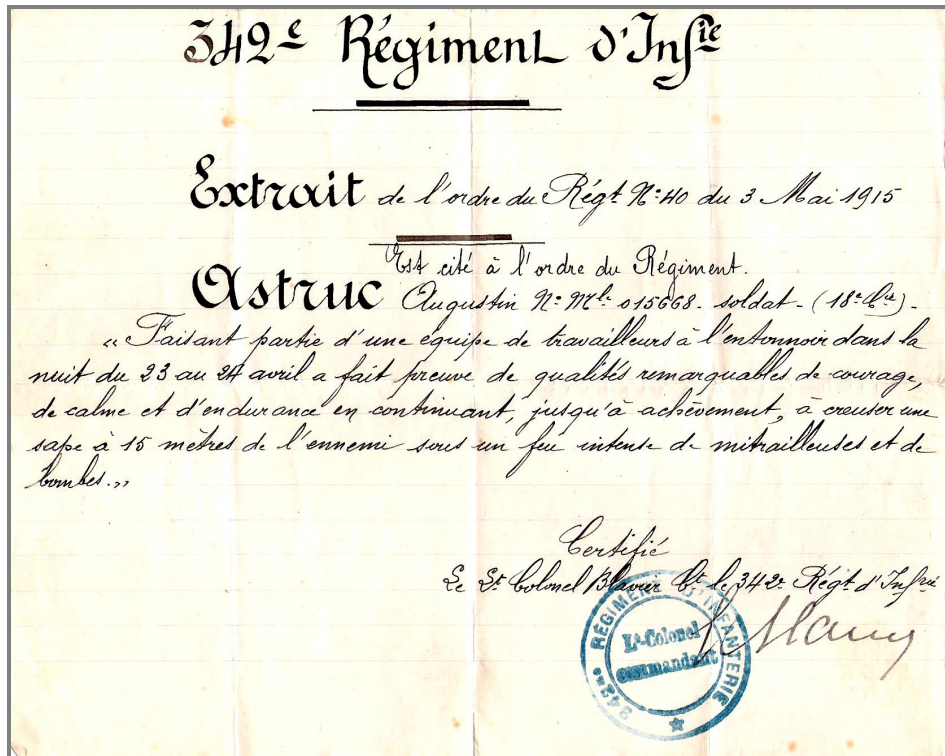 342e Régiment d'Infie
Extrait de l'ordre du Régt No 40 du 3 Mai 1915
Est cité à l'ordre du Régiment.
Astruc Augustin No Mle 015668 - soldat - (18e Cie) -
"Faisant partie d'une équipe de travailleurs à l'entonnoir dans la
nuit du 23 au 24 avril a fait preuve de qualités remarquables de courage,
de calme et d'endurance en continuant, jusqu'à achèvement, à creuser une
sape à 15 mètres de l'ennemi sous un feu intense de mitrailleuses et de
bombes."
Certifié
Le Lt Colonel Blavier Ct le 342e Régt d'Infie
342me RÉGIMENT D'INFANTERIE
Lt-Colonel
Commandant